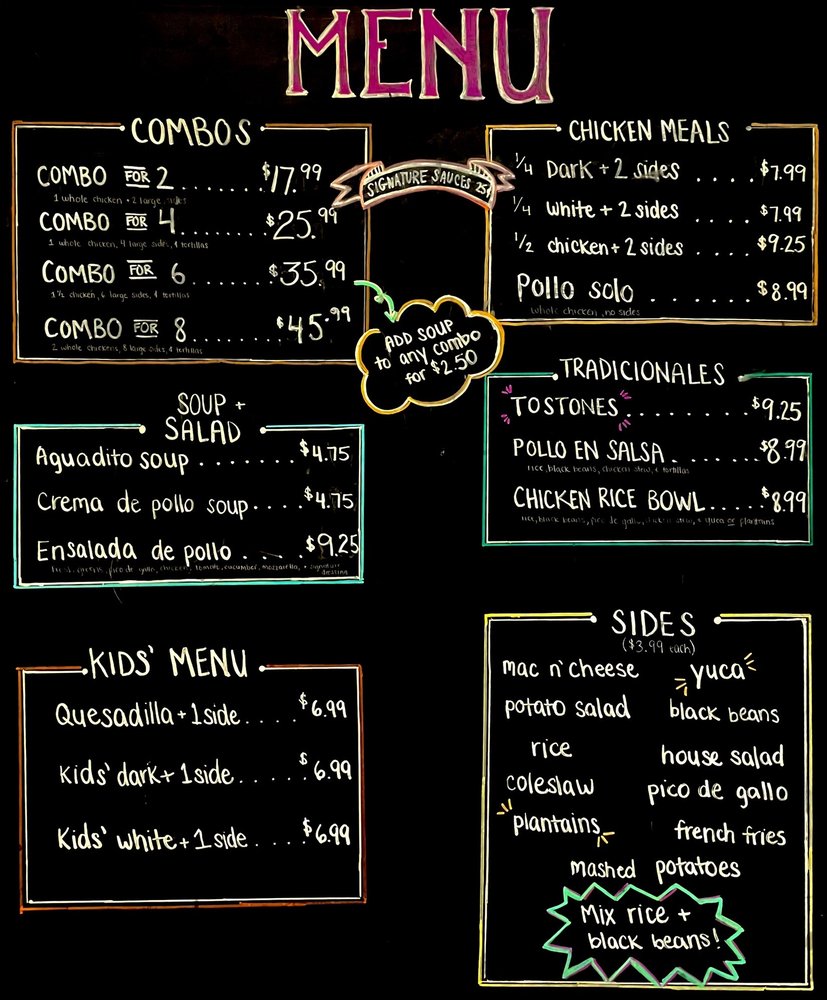 MENU
COMBOS
COMBO FOR 2........$17.99
1 whole chicken + 2 large sides
COMBO FOR 4.......$25.99
1 whole chicken, 4 large sides, 4 tortillas
COMBO FOR 6.......$35.99
1½ chicken, 6 large sides, 4 tortillas
COMBO FOR 8.......$45.99
2 whole chickens, 8 large sides, 4 tortillas
SIGNATURE SAUCES 25¢
ADD SOUP
to any combo
for $2.50
CHICKEN MEALS
1/4 Dark + 2 sides ....$7.99
1/4 white + 2 sides ....$7.99
1/2 chicken + 2 sides ....$9.25
Pollo solo .......$8.99
whole chicken, no sides
SOUP +
SALAD
Aguadito soup .......$4.75
Crema de pollo soup....$4.75
Ensalada de pollo .....$9.25
greens, pico de gallo, chicken, tomato, cucumber, mozzarella, + signature
dressing
TRADICIONALES
TOSTONES.........$9.25
POLLO EN SALSA.......$8.99
rice, black beans, chicken stew, + tortillas
CHICKEN RICE BOWL.....$8.99
rice, black beans, pico de gallo, chicken stew, + yuca or plantains
KIDS' MENU
Quesadilla + 1 side....$6.99
Kids' dark + 1 side.....$6.99
Kids' white + 1 side....$6.99
SIDES
($3.99 each)
mac n' cheese yuca
potato salad black beans
rice house salad
coleslaw pico de gallo
plantains french fries
mashed potatoes
Mix rice +
black beans!